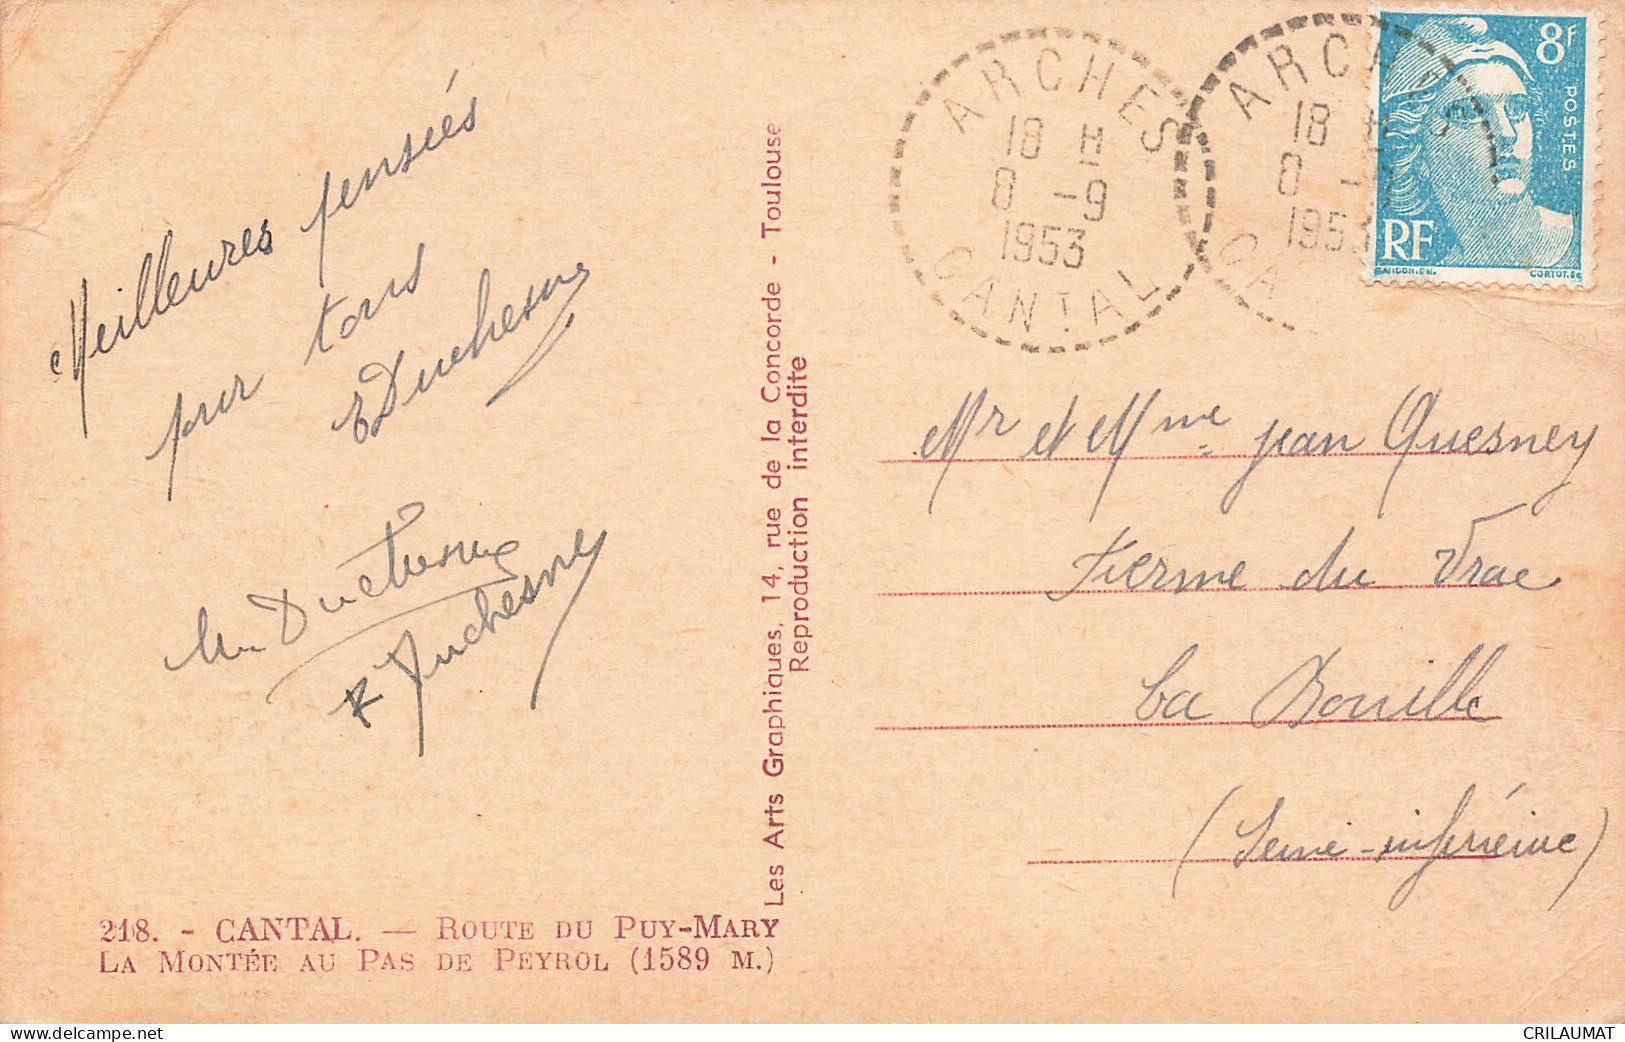 Meilleures pensées
pour tous
EDuchesne
M. Duchesne
R Duchesney
218. - CANTAL. — ROUTE DU PUY-MARY
LA MONTÉE AU PAS DE PEYROL (1589 M.)
Les Arts Graphiques, 14, rue de la Concorde - Toulouse
Reproduction interdite
ARCHES
18 H
8 -9
1953
CANTAL
ARCHES
18 H
8 -9
1953
CANTAL
8F
POSTES
RF
GANDON.DEL.
CORTOT.SC
Mr et Mme jean Quesney
Fierme du Vrac
La Bouille
(Seine-inférieure)
CRILAUMAT